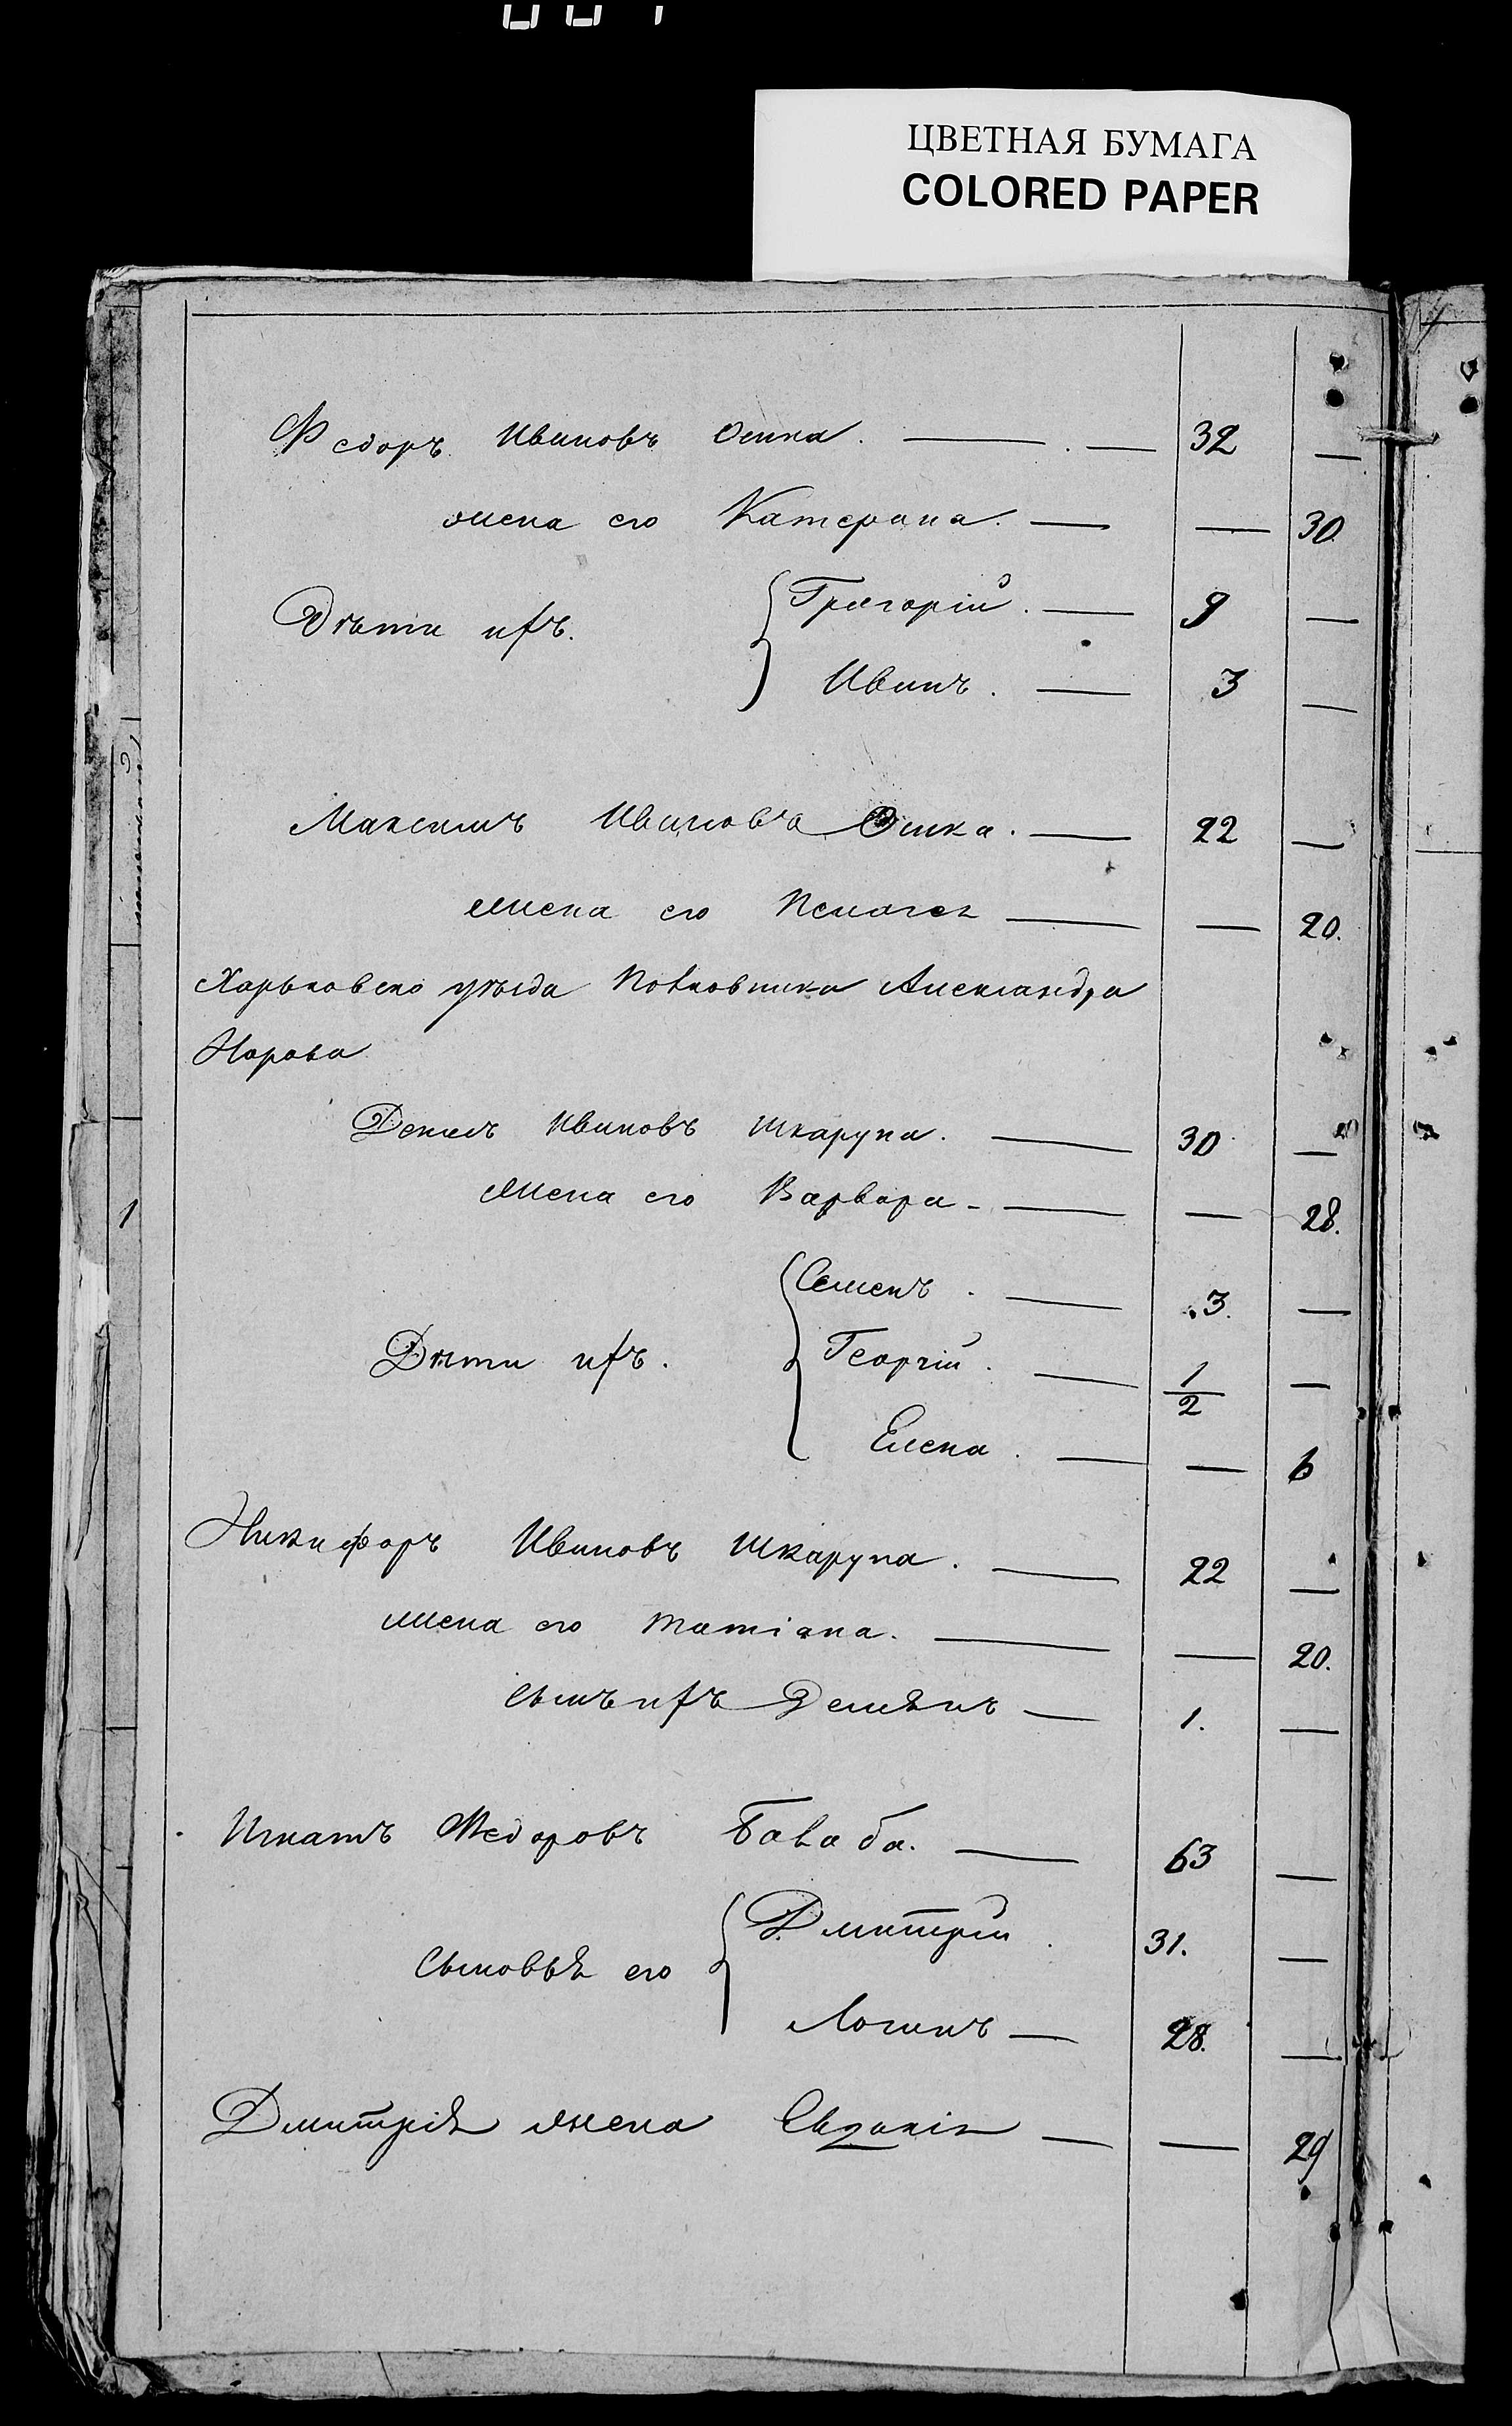 ЦВЕТНАЯ БУМАГА
COLORED PAPER
Федоръ Ивановъ Осипа. 32 —
жена его Катерина. — 30
Дѣти ихъ. Григорій. 9 —
Иванъ. 3 —
Максимъ Ивановъ 22 —
жена его Пелагея — 20.
Харьковско уѣзда Полковника Александра
Норова
Ивановъ Шкарупа. 30 —
жена его Варвара — 28.
Семенъ. 3. —
Дѣти ихъ. Георгій. 1/2 —
Елена. — 6
Никифоръ Ивановъ Шкарупа. 22 —
жена его Татіана. — 20.
Сынъ ихъ Демѣнъ 1. —
Игнатъ Федоровъ Балаба. 63 —
Сыновья его Дмитрій. 31. —
Логинъ 28. —
Дмитрія жена Евдокія — 29
1